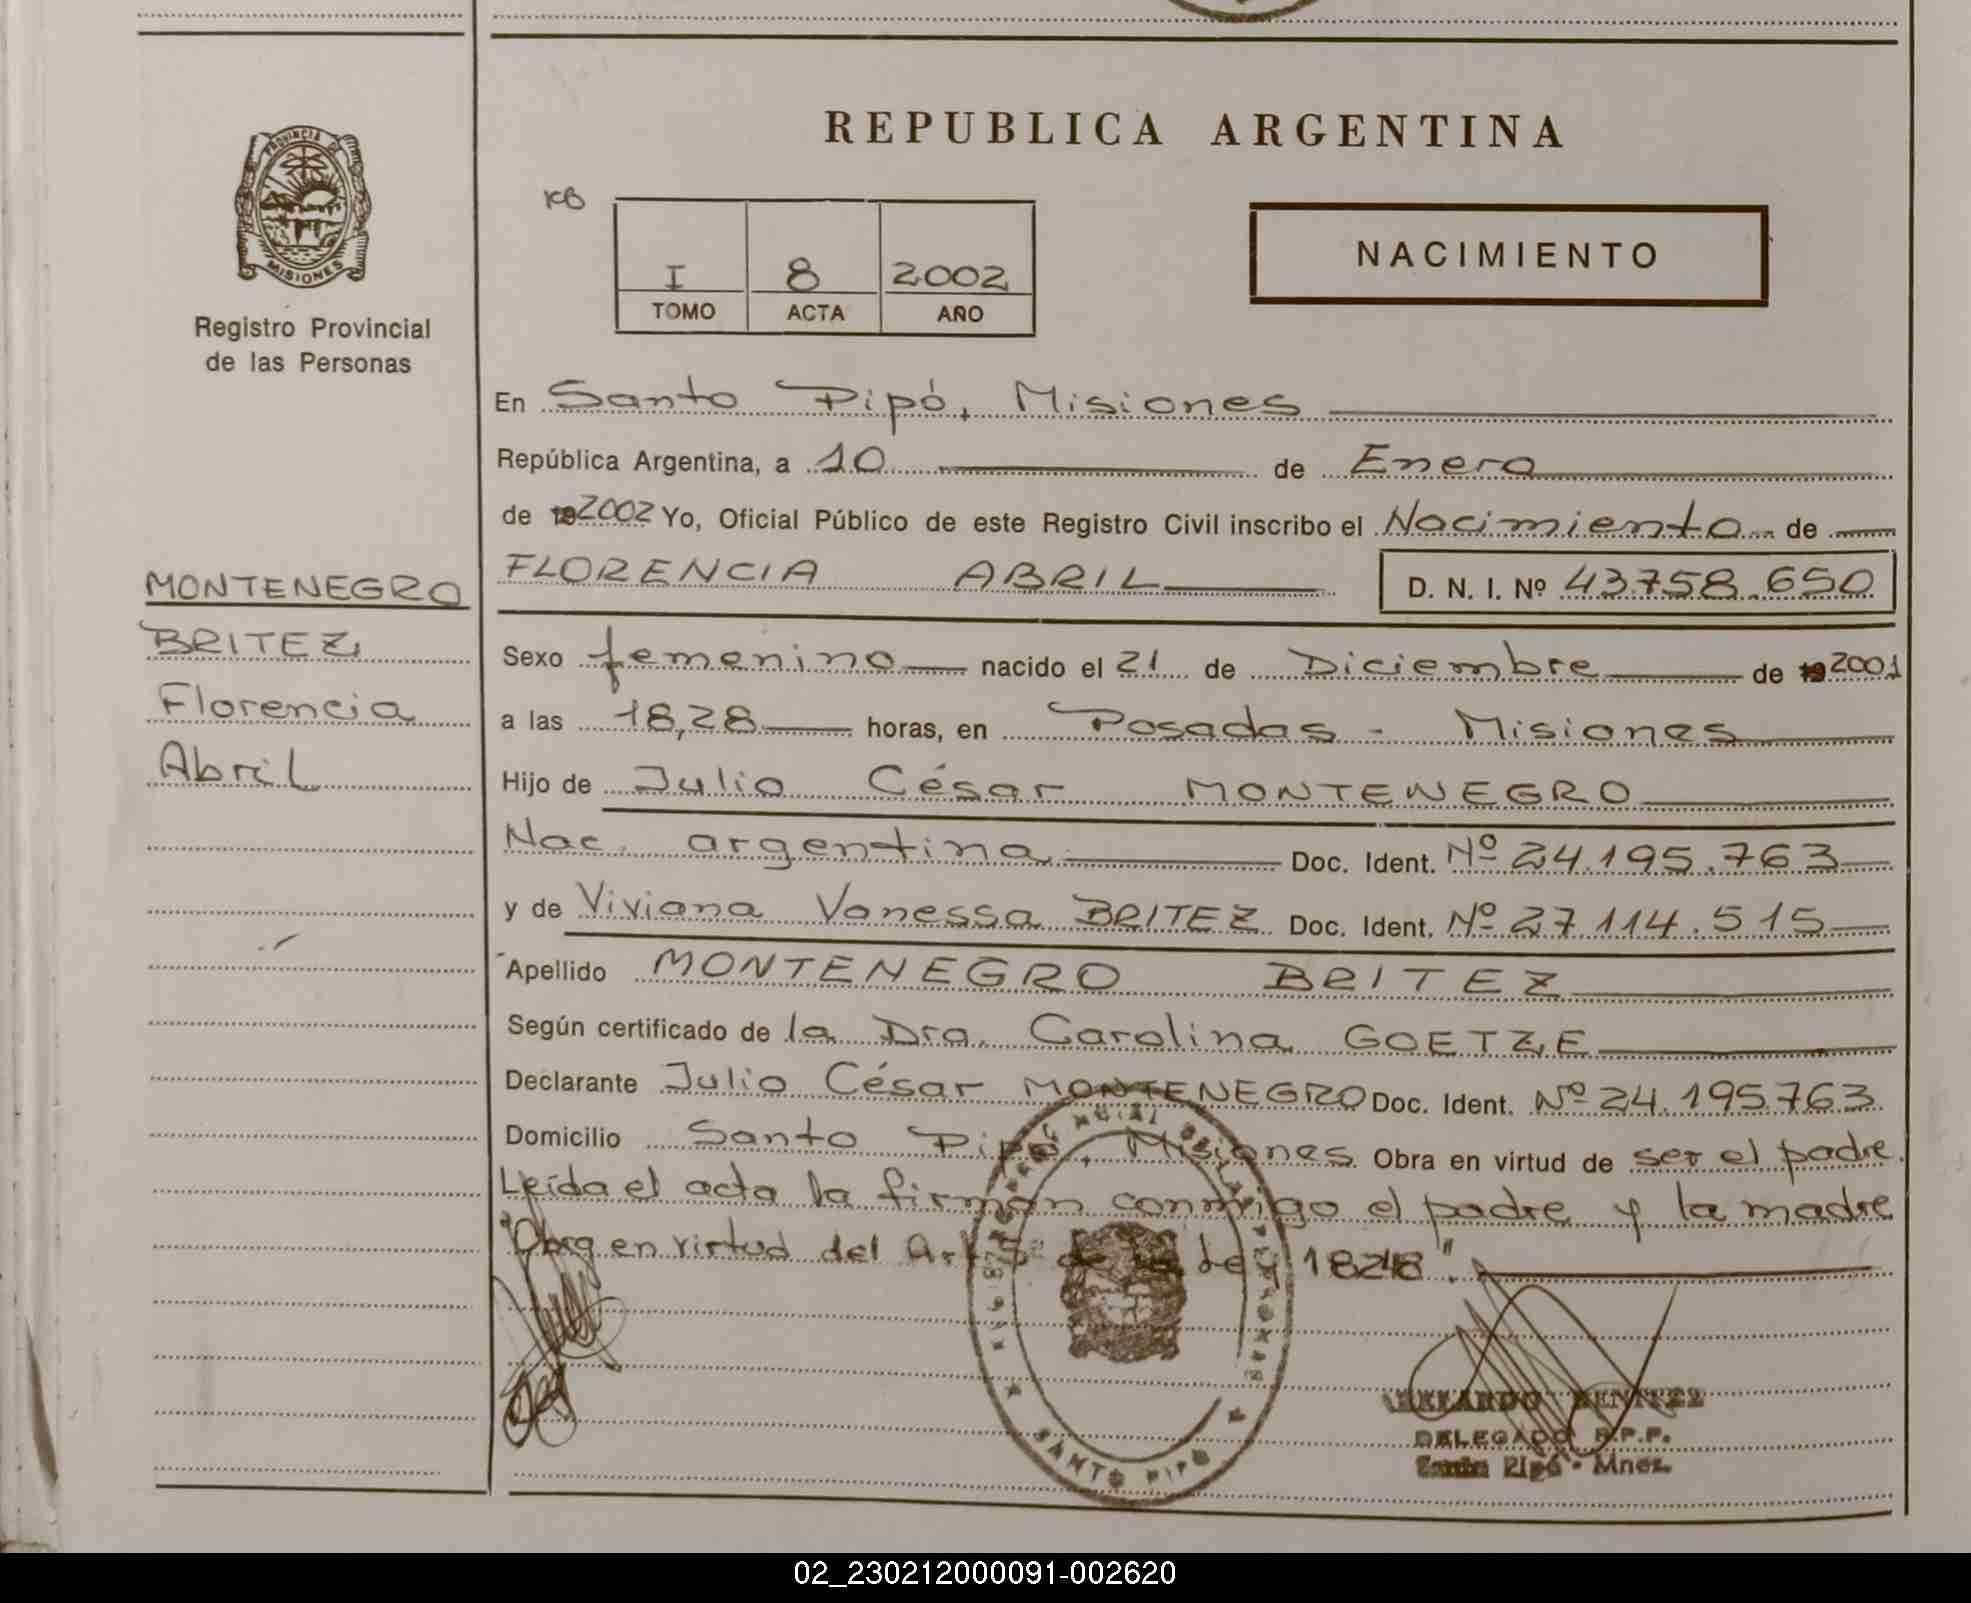 REPUBLICA ARGENTINA
PROVINCIA DE
MISIONES
Registro Provincial
de las Personas
KB
I 8 2002
TOMO ACTA AÑO
NACIMIENTO
En Santo Pipó, Misiones
República Argentina, a 10 de Enero
de 192002 Yo, Oficial Público de este Registro Civil inscribo el Nacimiento de
FLORENCIA ABRIL D. N. I. Nº 43.758.650
MONTENEGRO
BRITEZ
Florencia
Abril
Sexo femenino nacido el 21 de Diciembre de 192001
a las 18,28 horas, en Posadas - Misiones
Hijo de Julio César MONTENEGRO
Nac. argentina Doc. Ident. Nº 24.195.763
y de Viviana Vanessa BRITEZ Doc. Ident. Nº 27.114.515
Apellido MONTENEGRO BRITEZ
Según certificado de la Dra. Carolina GOETZE
Declarante Julio César MONTENEGRO Doc. Ident. Nº 24.195.763
Domicilio Santo Pipó, Misiones Obra en virtud de ser el padre.
Leída el acta la firman conmigo el padre y la madre
"Obra en virtud del Art. 5º de la Ley 18248".
SANTO PIPO
BENITEZ
DELEGADO R.P.P.
Santo Pipó - Mnes.
02_230212000091-002620